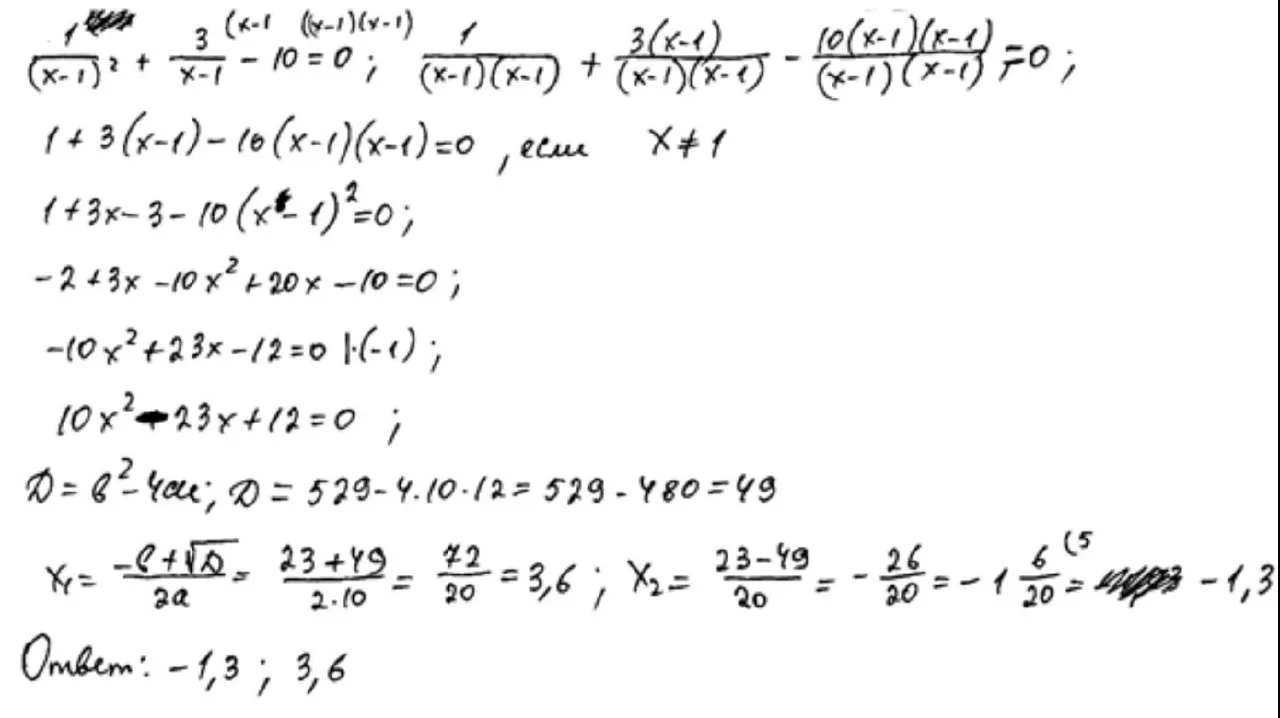 1/(x-1)² + 3/(x-1) (x-1 ((x-1)(x-1) - 10 = 0 ; 1/((x-1)(x-1)) + 3(x-1)/((x-1)(x-1)) - 10(x-1)(x-1)/((x-1)(x-1)) = 0 ;
1 + 3(x-1) - 10(x-1)(x-1) = 0 , если x ≠ 1
1 + 3x - 3 - 10(x - 1)² = 0 ;
-2 + 3x - 10x² + 20x - 10 = 0 ;
-10x² + 23x - 12 = 0 |·(-1) ;
10x² - 23x + 12 = 0 ;
D = b² - 4ac ; D = 529 - 4·10·12 = 529 - 480 = 49
x₁ = (-b + √D)/2a = (23 + 49)/(2·10) = 72/20 = 3,6 ; x₂ = (23 - 49)/20 = - 26/20 = - 1 6/20 (5 = - 1,3
Ответ: -1,3 ; 3,6